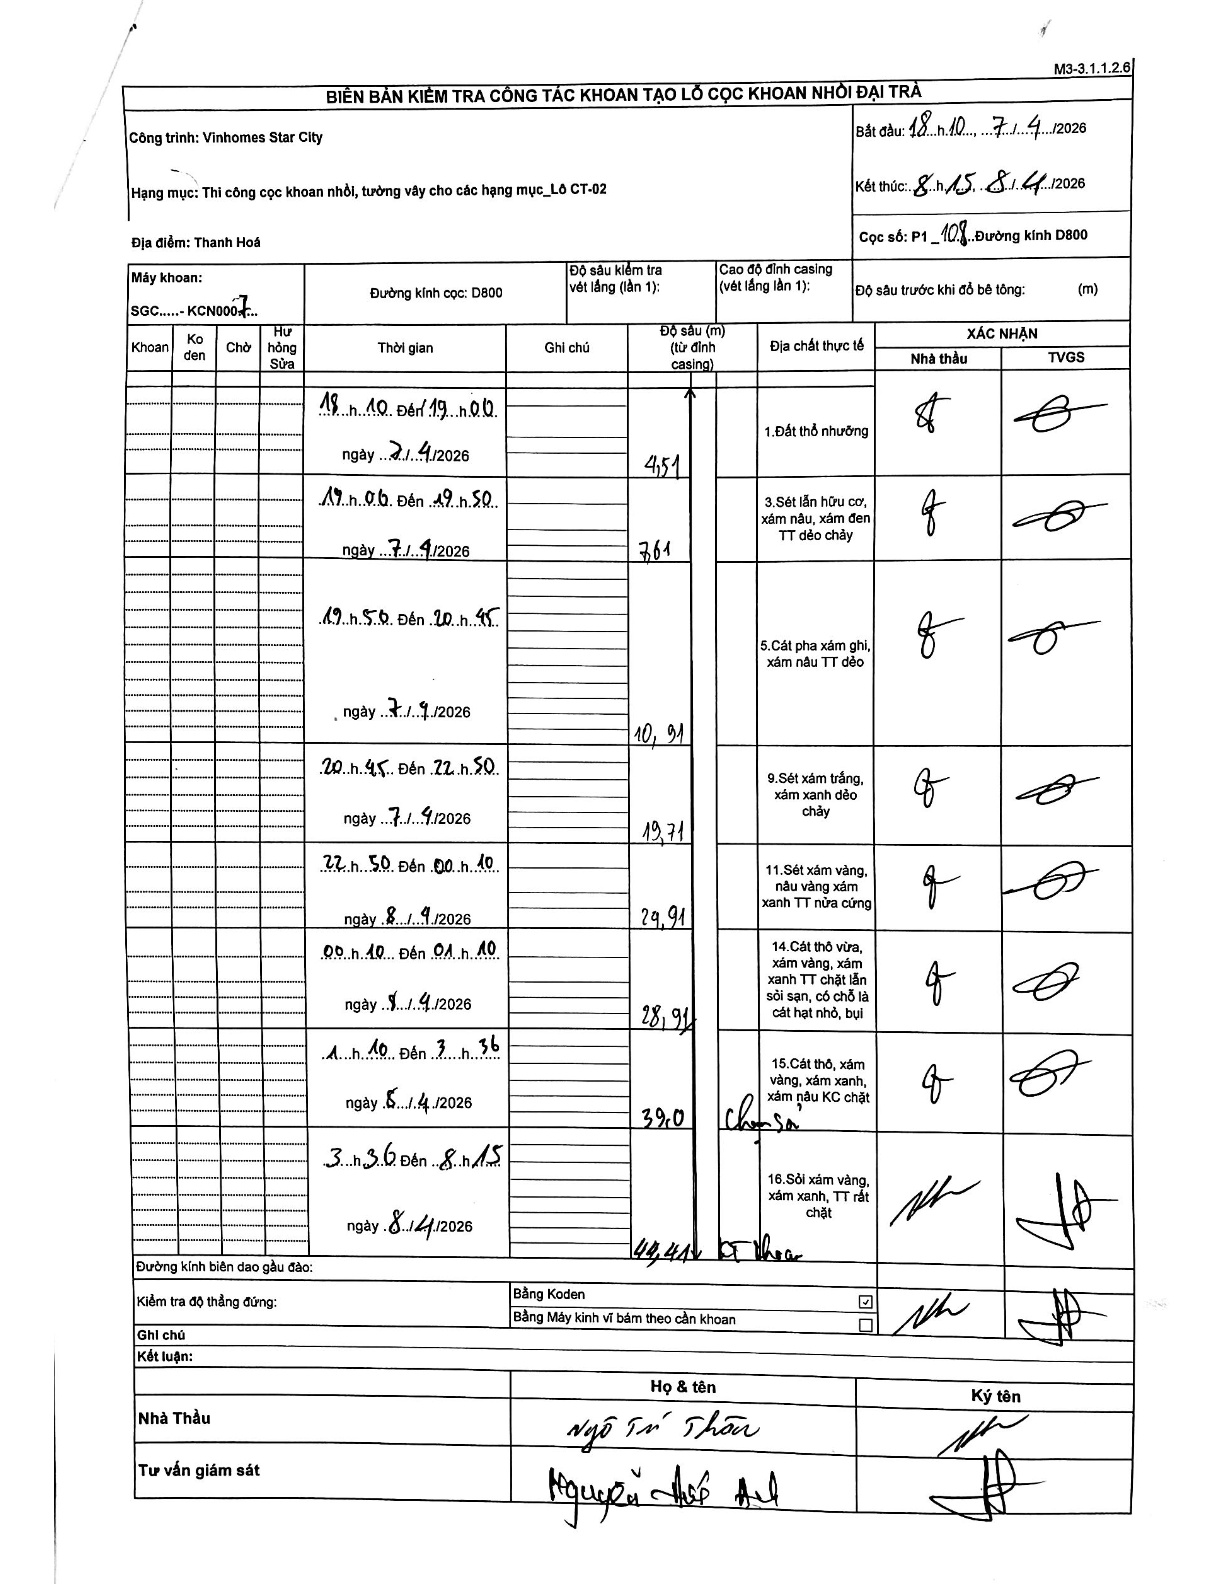 M3-3.1.1.2.6
BIÊN BẢN KIỂM TRA CÔNG TÁC KHOAN TẠO LỖ CỌC KHOAN NHỒI ĐẠI TRÀ
Công trình: Vinhomes Star City
Bắt đầu: 18..h.10..., ...7../..4.../2026
Hạng mục: Thi công cọc khoan nhồi, tường vây cho các hạng mục_Lô CT-02
Kết thúc:..8..h.15.., ..8../.4.../2026
Địa điểm: Thanh Hoá
Cọc số: P1 _108..Đường kính D800
Máy khoan:
SGC.....- KCN0007...
Đường kính cọc: D800
Độ sâu kiểm tra vét lắng (lần 1):
Cao độ đỉnh casing (vét lắng lần 1):
Độ sâu trước khi đổ bê tông: (m)
Khoan Ko đen Chờ Hư hỏng Sửa Thời gian Ghi chú Độ sâu (m) (từ đỉnh casing) Địa chất thực tế XÁC NHẬN
Nhà thầu TVGS
18...h..10. Đến 19...h.00.
ngày ...7./..4./2026
4,51
1.Đất thổ nhưỡng
19..h.00. Đến .19..h.50..
ngày ...7../...4./2026
7,61
3.Sét lẫn hữu cơ, xám nâu, xám đen TT dẻo chảy
.19..h.50. Đến .20..h..45.
ngày ...7../..4./2026
10,91
5.Cát pha xám ghi, xám nâu TT dẻo
.20..h.45.. Đến .22.h.50.
ngày ...7../...4./2026
19,71
9.Sét xám trắng, xám xanh dẻo chảy
22..h...50. Đến .00..h..10..
ngày .8.../..4./2026
24,91
11.Sét xám vàng, nâu vàng xám xanh TT nửa cứng
00..h..10... Đến .01..h..10.
ngày ..8.../..4./2026
28,91
14.Cát thô vừa, xám vàng, xám xanh TT chặt lẫn sỏi sạn, có chỗ là cát hạt nhỏ, bụi
.1...h..10.. Đến ..3....h..36
ngày .8.../.4./2026
39,0
15.Cát thô, xám vàng, xám xanh, xám nâu KC chặt
.3...h.36. Đến ..8..h.15
ngày .8../4./2026
44,41
16.Sỏi xám vàng, xám xanh, TT rất chặt
KT khoan
Đường kính biên dao gầu đào:
Kiểm tra độ thẳng đứng:
Bằng Koden ☑
Bằng Máy kinh vĩ bám theo cần khoan ☐
Ghi chú
Kết luận:
Họ & tên Ký tên
Nhà Thầu
Ngô Trí
Tư vấn giám sát
Nguyễn